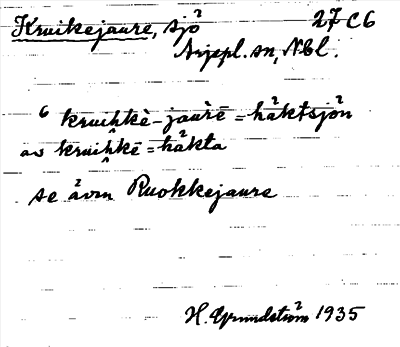 Kruikejaure, sjö 27 C 6
Arjepl. sn, Nbl.
6 kruihkè-jaùrē = håktsjön
av kruihkē = håkta
se även Ruokkejaure
H. Grundström 1935